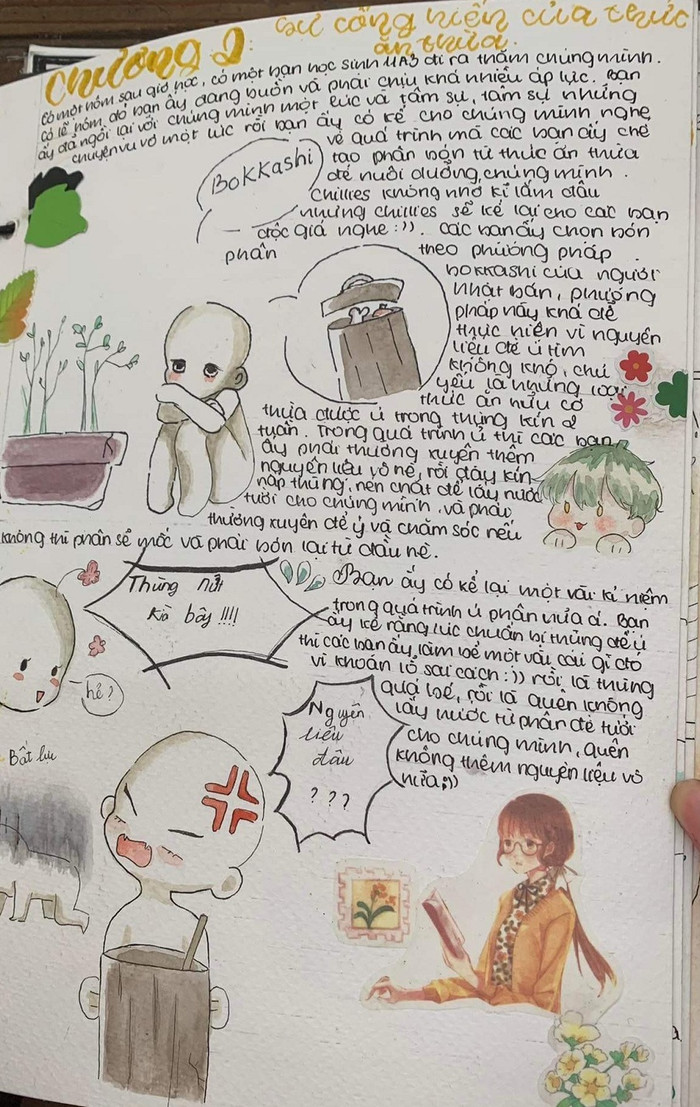 Chương 2: sự cống hiến của thức
ăn thừa.
Có một hôm sau giờ học, có một bạn học sinh 11A3 đi ra thăm chúng mình.
có lẽ hôm đó bạn ấy đang buồn và phải chịu khá nhiều áp lực. Bạn
ấy đã ngồi lại với chúng mình một lúc và tâm sự, tâm sự những
chuyện vu vơ một lúc rồi bạn ấy có kể cho chúng mình nghe
về quá trình mà các bạn ấy chế
Bokkashi
tạo phân bón từ thức ăn thừa
để nuôi dưỡng chúng mình.
Chillies không nhớ kĩ lắm đâu
nhưng chillies sẽ kể lại cho các bạn
độc giả nghe :)). các bạn ấy chọn bón
phân theo phương pháp
bokkashi của người
nhật bản, phương
pháp này khá dễ
thực hiện vì nguyên
liệu để ủ tìm
không khó, chủ
yếu là những loại
thức ăn hữu cơ
thừa được ủ trong thùng kín 2
tuần. Trong quá trình ủ thì các bạn
ấy phải thường xuyên thêm
nguyên liệu vô nè, rồi đậy kín
nắp thùng, nén chặt để lấy nước
tưới cho chúng mình. và phải
thường xuyên để ý và chăm sóc nếu
không thì phân sẽ mốc và phải bón lại từ đầu nè.
Thùng nứt
kìa bây !!!!
Bạn ấy có kể lại một vài kỉ niệm
trong quá trình ủ phân nữa á. Bạn
ấy kể rằng lúc chuẩn bị thùng để ủ
thì các bạn ấy làm bể một vài cái
vì khoan lỗ sai cách :)) rồi là thùng
hể?
quá bé, rồi là quên không
lấy nước từ phân để tưới
cho chúng mình, quên
không thêm nguyên liệu vô
nữa;))
Nguyên
liệu
đâu
???
Bất lực